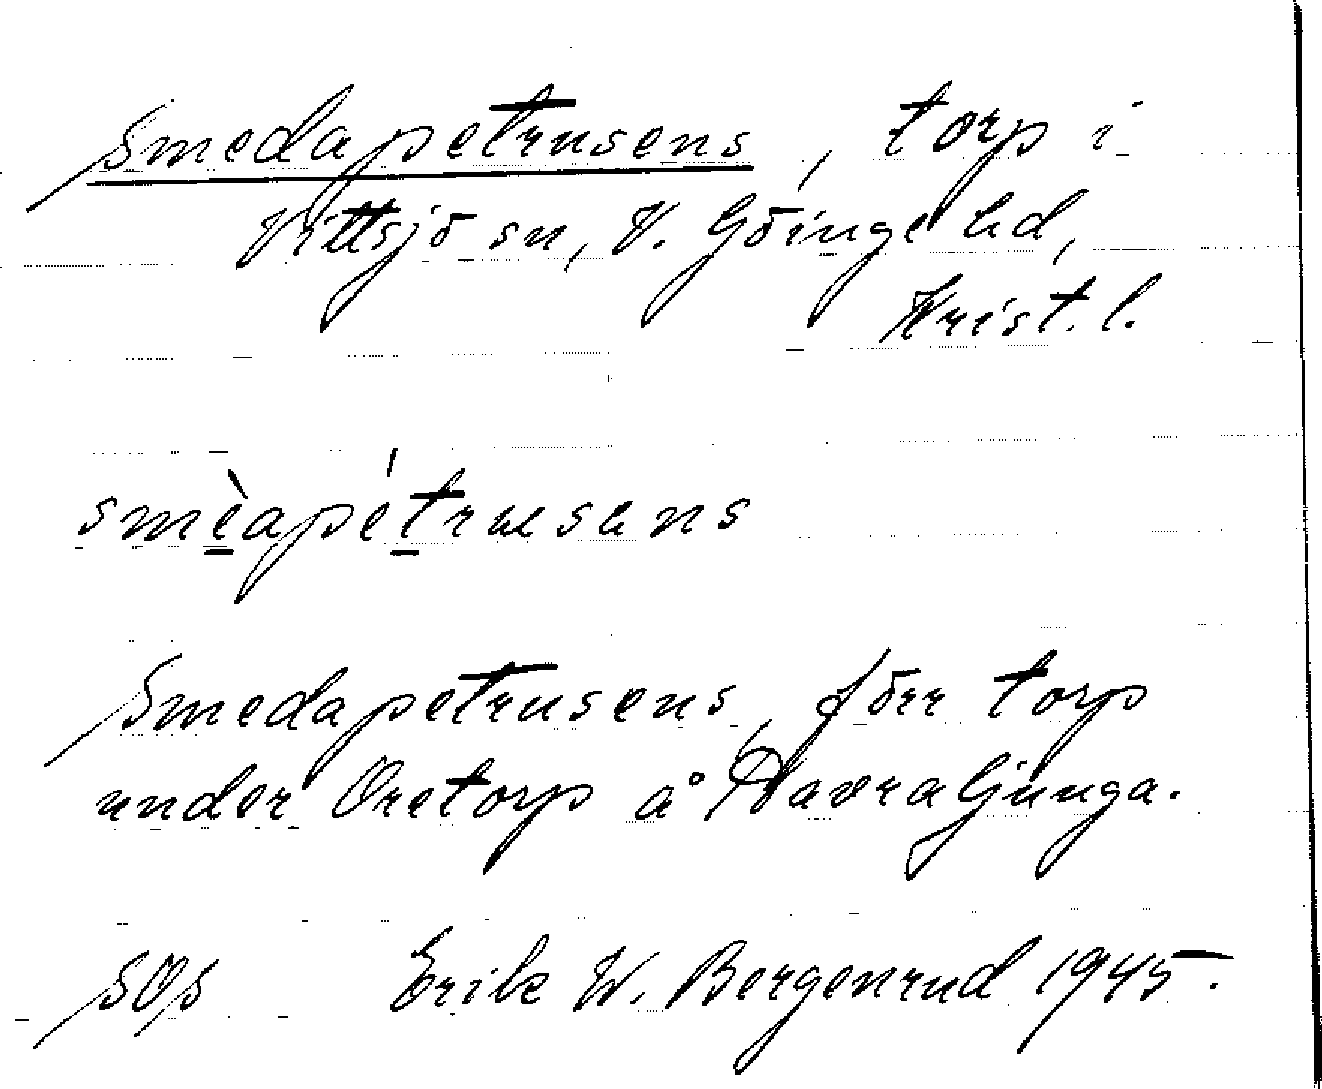 Smedapetrusens, torp i
Vittsjö sn, V. Göinge hd,
Krist. l.
smèapétrusens
Smedapetrusens, förr torp
under Oretorp å Pavraljunga.
SOS Erik W. Bergenrud 1945.